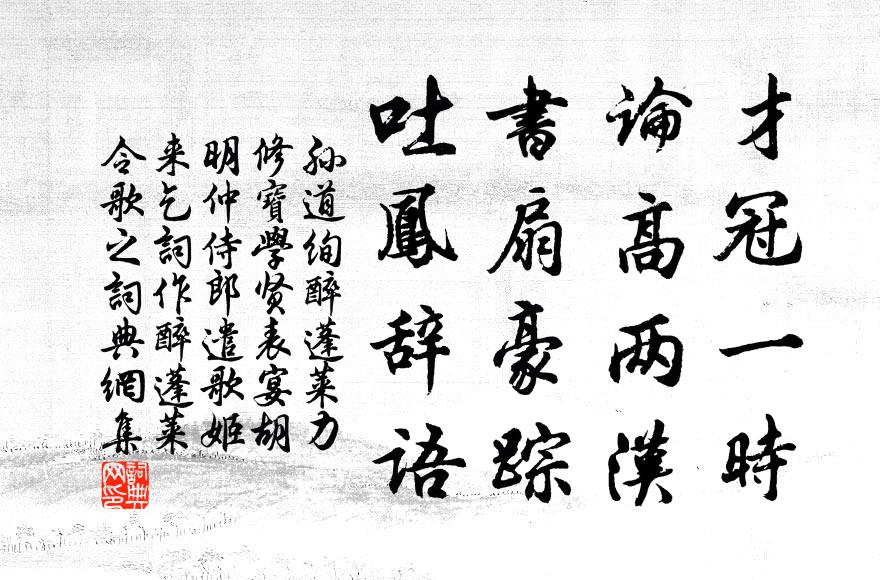 才冠一時
論高两漢
書扇豪踪
吐鳳辞语
孙道绚醉蓬莱力
修寶學贤表宴胡
明仲侍郎遣歌姬
来乞詞作醉蓬莱
令歌之詞典網集
詞典网印